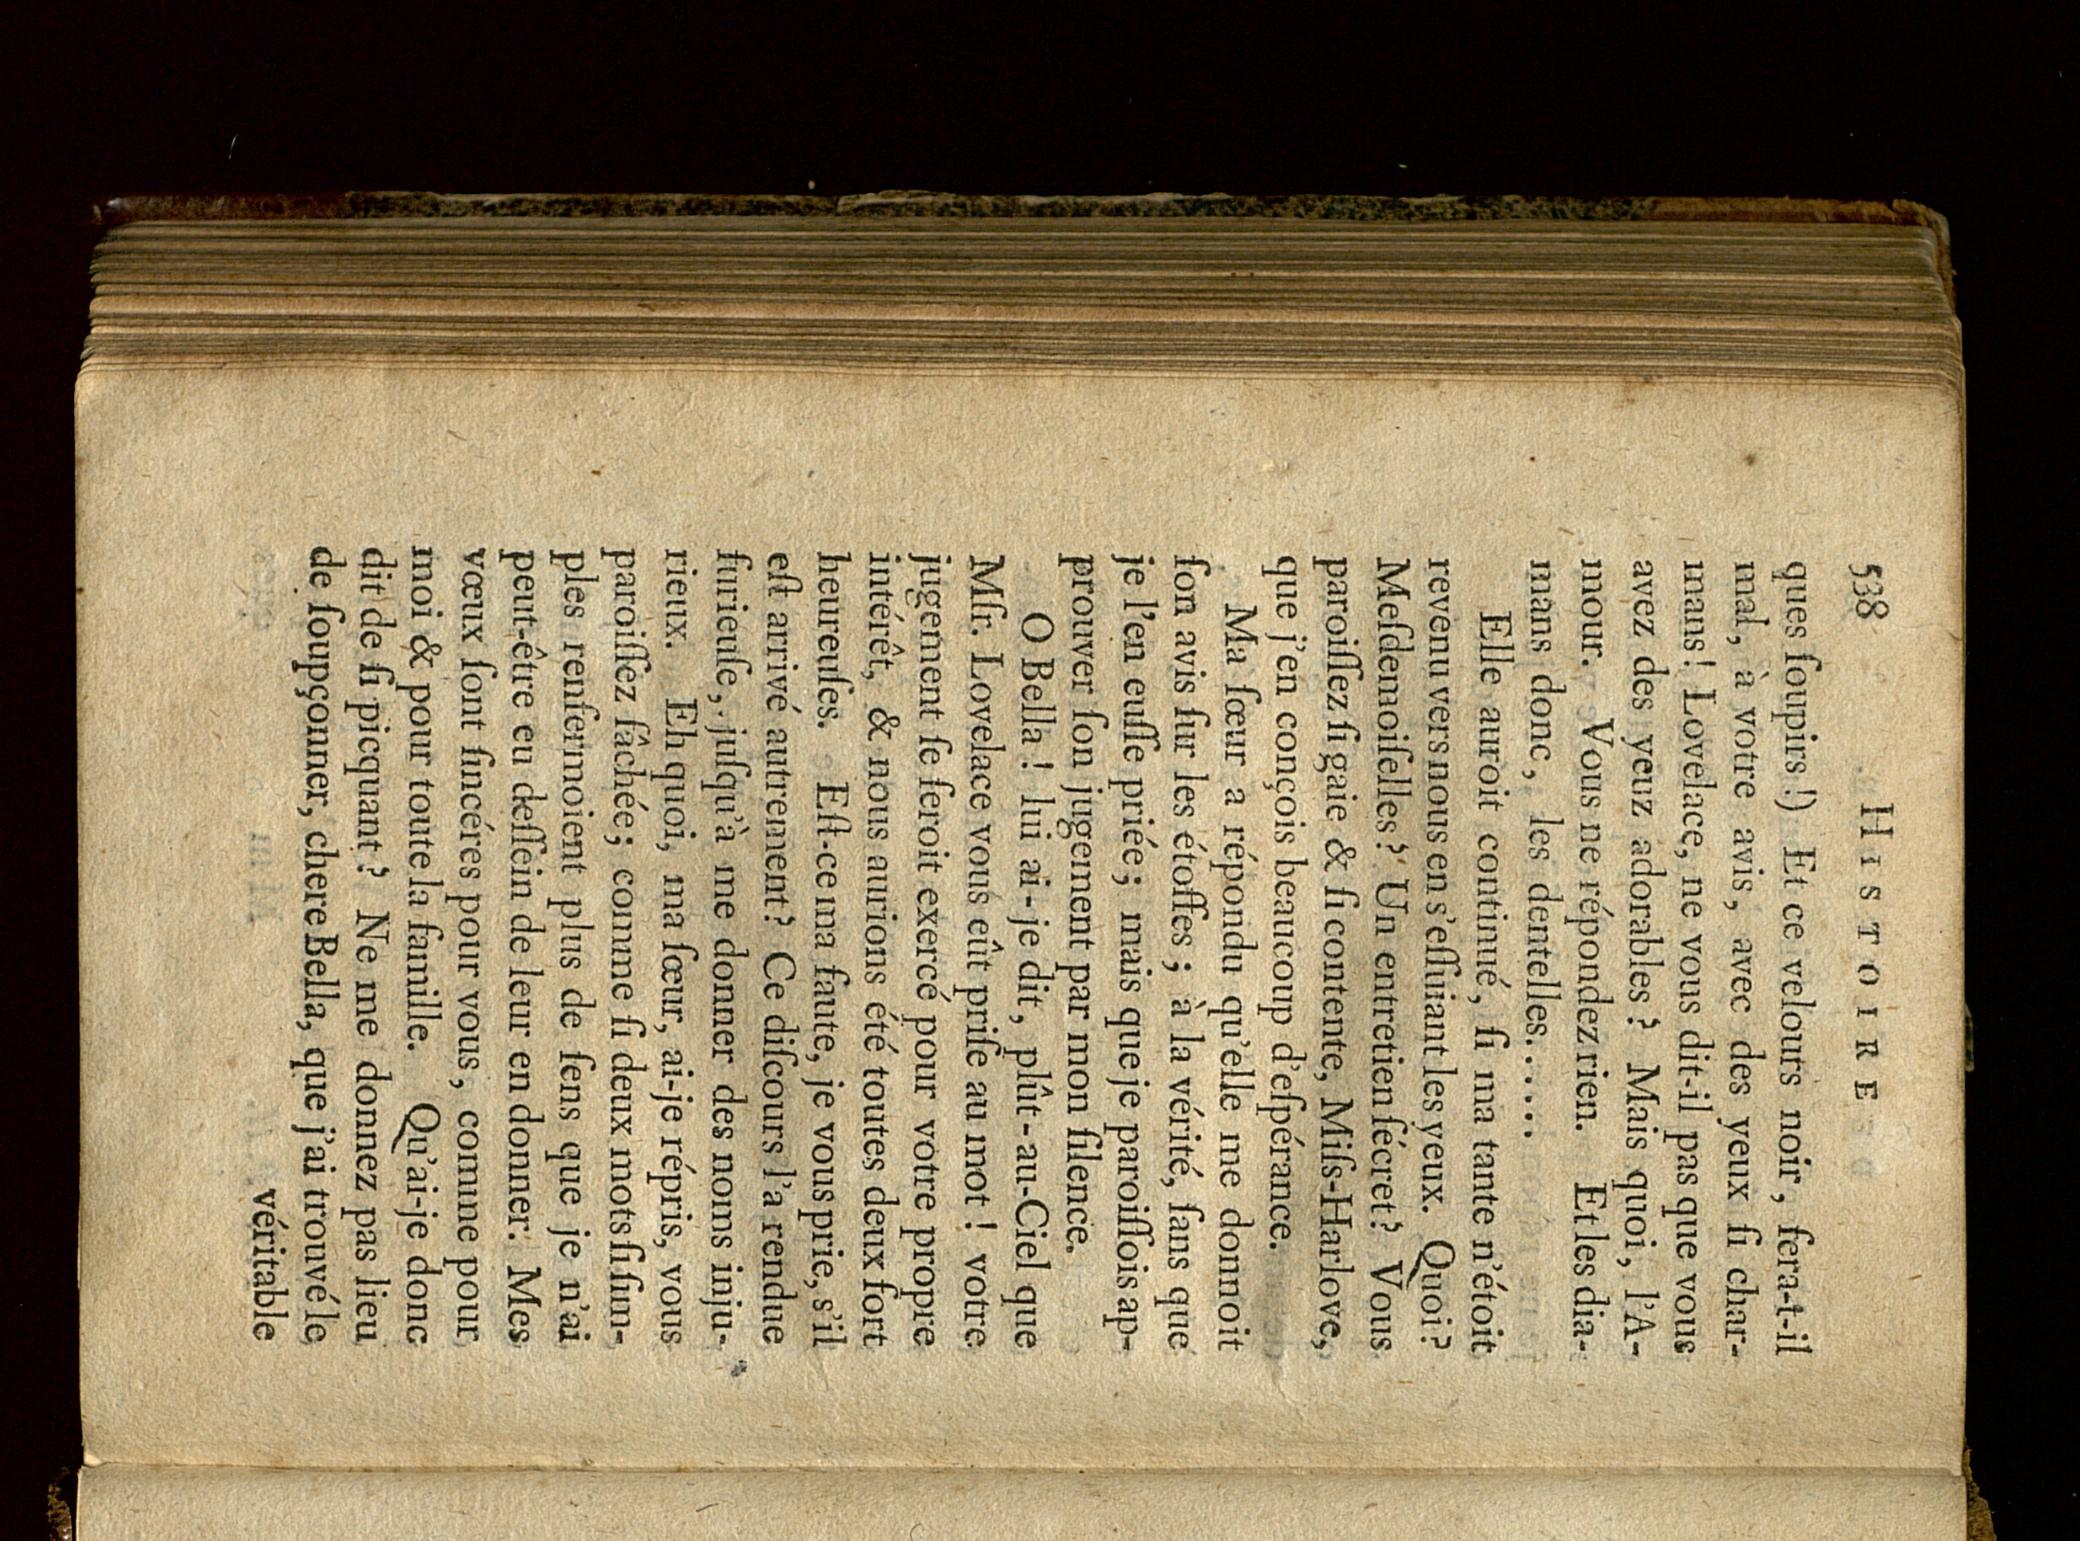 538 HISTOIRE
ques ſoupirs!) Et ce velours noir, ſera-t-il
mal, à votre avis, avec des yeux ſi char-
mans! Lovelace, ne vous dit-il pas que vous
avez des yeuz adorables? Mais quoi, l'A-
mour. Vous ne répondez rien. Et les dia-
mans donc, les dentelles.....
Elle auroit continué, ſi ma tante n'étoit
revenu vers nous en s'eſſuiant les yeux. Quoi?
Meſdemoiſelles? Un entretien ſécret? Vous
paroiſſez ſi gaie & ſi contente, Miſs-Harlove,
que j'en conçois beaucoup d'eſpérance.
Ma ſœur a répondu qu'elle me donnoit
ſon avis ſur les étoffes; à la vérité, ſans que
je l'en euſſe priée; mais que je paroiſſois ap-
prouver ſon jugement par mon ſilence.
O Bella! lui ai-je dit, plût-au-Ciel que
Mſr. Lovelace vous eût priſe au mot! votre
jugement ſe ſeroit exercé pour votre propre
intérêt, & nous aurions été toutes deux fort
heureuſes. Eſt-ce ma faute, je vous prie, s'il
eſt arrivé autrement? Ce diſcours l'a rendue
furieuſe, juſqu'à me donner des noms inju-
rieux. Eh quoi, ma ſœur, ai-je répris, vous
paroiſſez fâchée; comme ſi deux mots ſi ſim-
ples renfermoient plus de ſens que je n'ai
peut-être eu deſſein de leur en donner. Mes
vœux ſont ſincéres pour vous, comme pour
moi & pour toute la famille. Qu'ai-je donc
dit de ſi picquant? Ne me donnez pas lieu
de ſoupçonner, chere Bella, que j'ai trouvé le
véritable